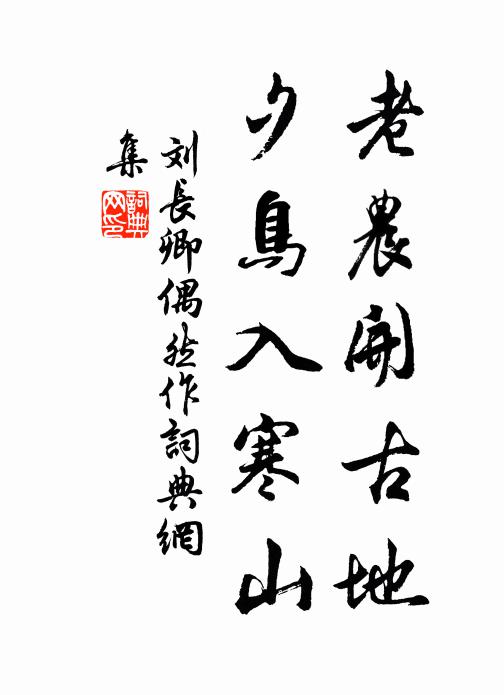 老農開古地
夕鳥入寒山
刘長卿偶然作詞典網
集
詞典
网印